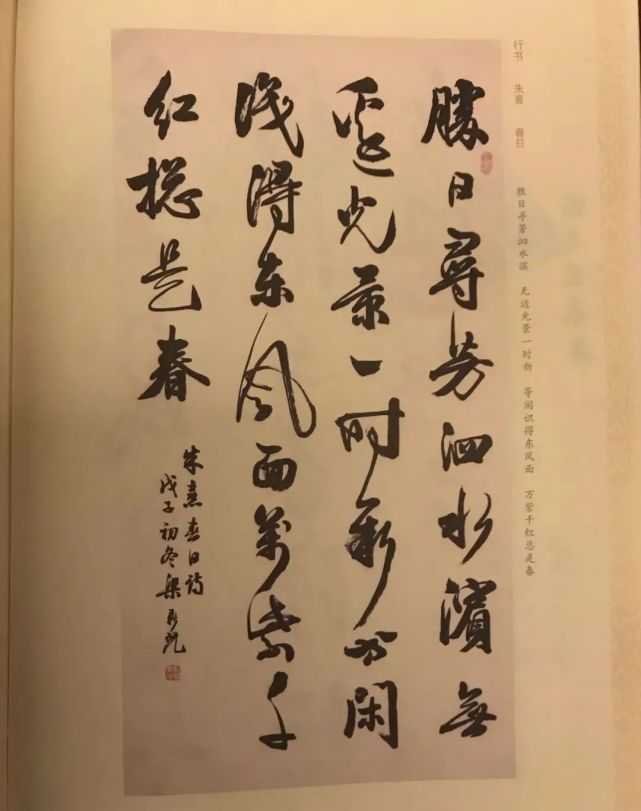 行书 朱熹 春日
胜日寻芳泗水滨 无边光景一时新 等闲识得东风面 万紫千红总是春
勝日尋芳泗水濱無
邊光景一时新等闲
識得东风面萬紫千
红揔是春
朱熹春日诗
戊子初冬梁